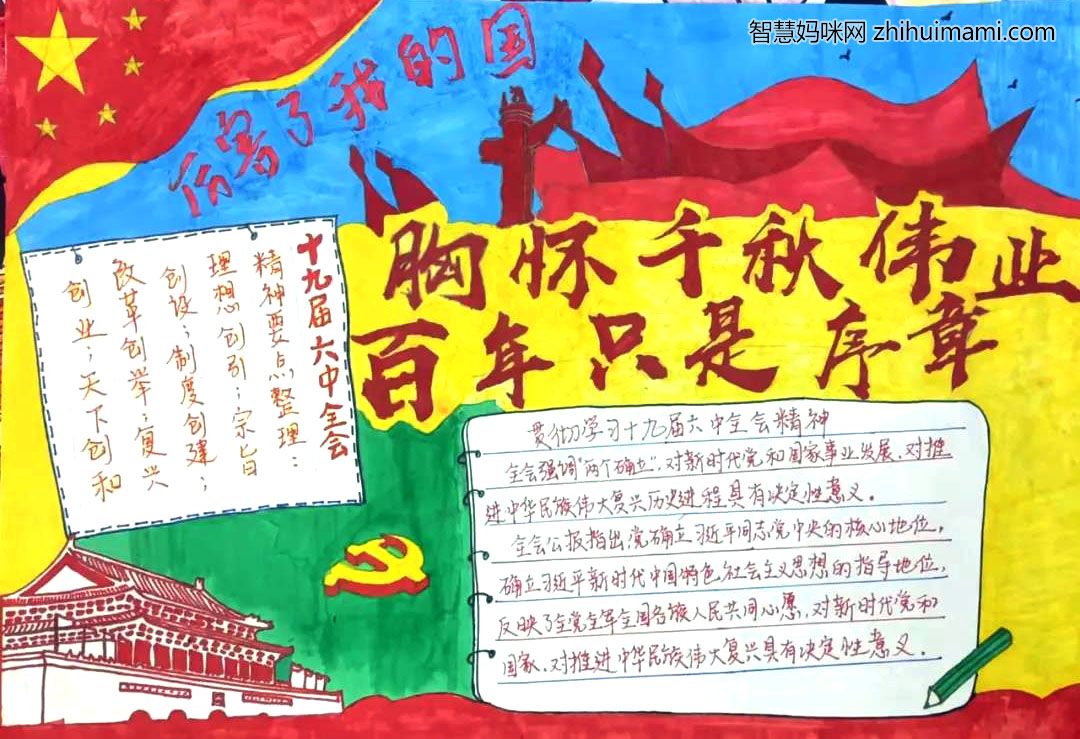 智慧妈咪网 zhihuimami.com
厉害了我的国
胸怀千秋伟业
百年只是序章
十九届六中全会
精神要点整理:
理想创引;宗旨
创设;制度创建;
改革创举;复兴
创业;天下创和
贯彻学习十九届六中全会精神
全会强调"两个确立",对新时代党和国家事业发展、对推
进中华民族伟大复兴历史进程具有决定性意义。
全会公报指出,党确立习近平同志党中央的核心地位,
确立习近平新时代中国特色社会主义思想的指导地位,
反映了全党全军全国各族人民共同心愿,对新时代党和
国家、对推进中华民族伟大复兴具有决定性意义。